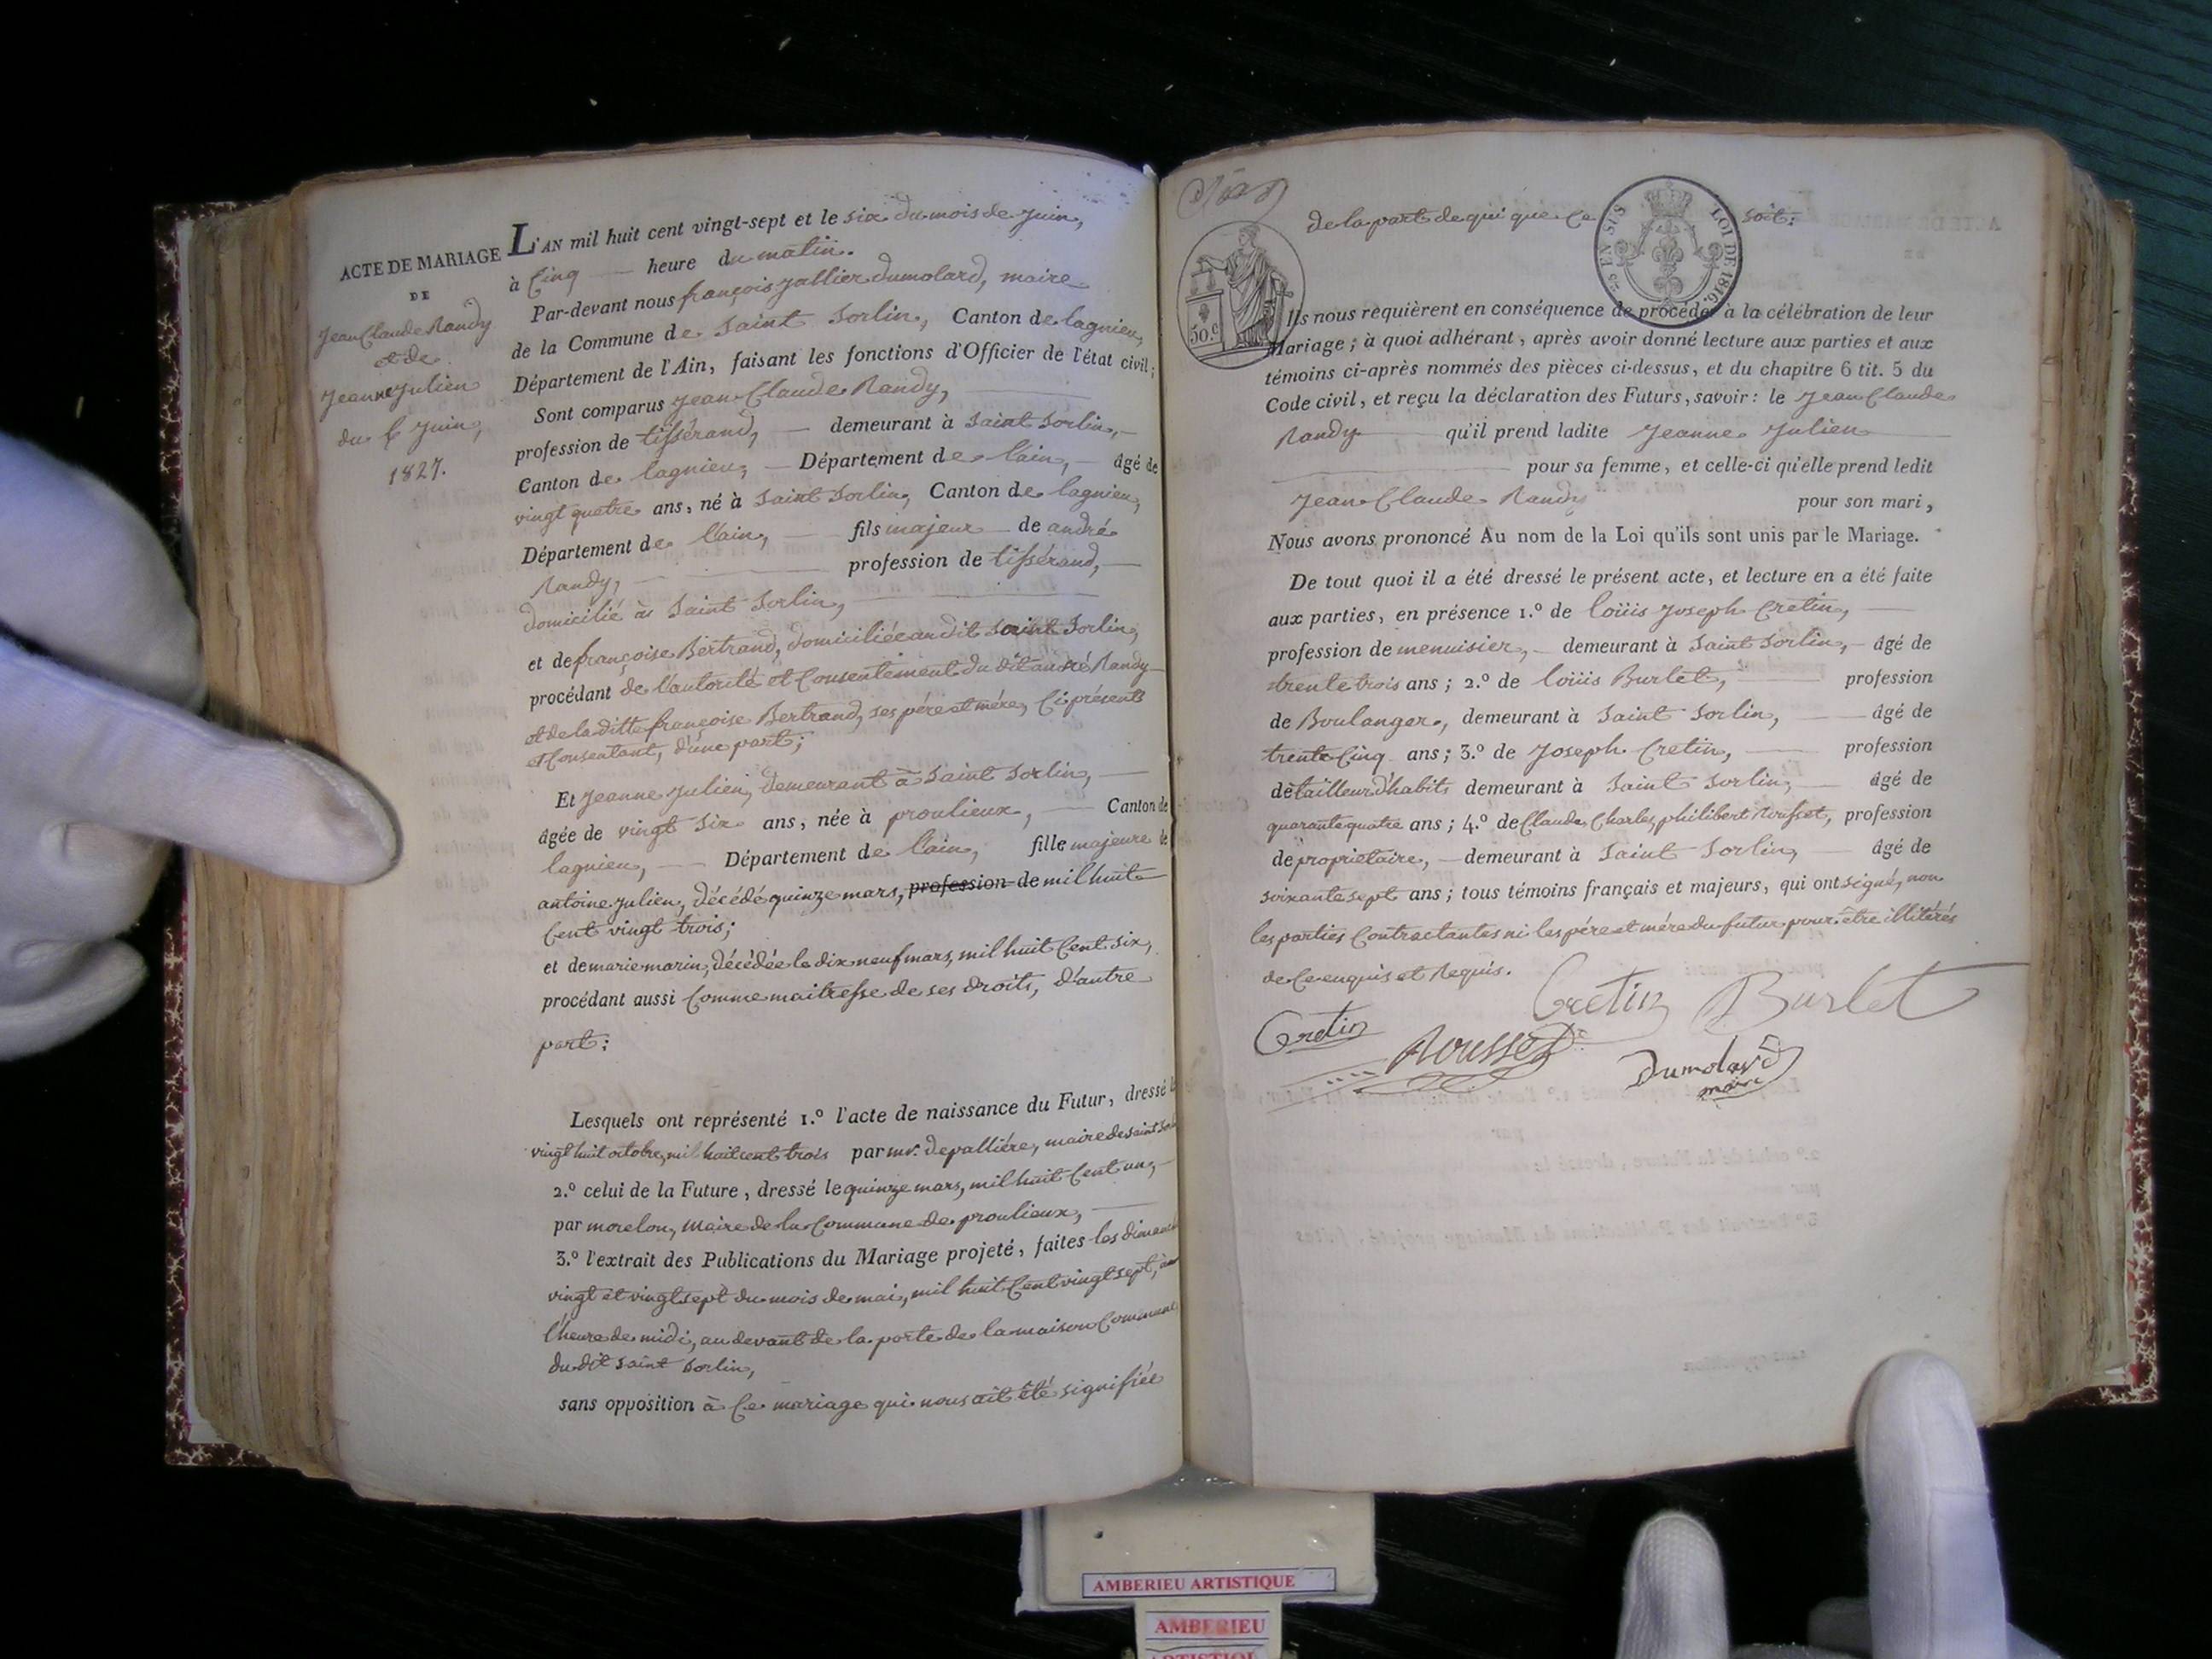 ACTE DE MARIAGE
DE
Jean Claude Randy
et de
Jeanne Julien
du 6 juin,
1827.
L'AN mil huit cent vingt-sept et le six du mois de juin,
à Cinq heure du matin.
Par-devant nous françois jallier dumolard, maire
de la Commune de Saint Sorlin, Canton de lagnieu,
Département de l'Ain, faisant les fonctions d'Officier de l'état civil;
Sont comparus Jean Claude Randy,
profession de tissérand, demeurant à Saint Sorlin,
Canton de lagnieu, Département de l'ain, âgé de
vingt quatre ans, né à Saint Sorlin, Canton de lagnieu,
Département de l'ain, fils majeur de andré
Randy, profession de tissérand,
domicilié à Saint Sorlin,
et de françoise Bertrand, domiciliée au dit Saint Sorlin,
procédant de l'autorité et Consentement du dit andré Randy
et de la ditte françoise Bertrand, ses pére et mére, Ci présents
et Consentant, d'une part;
Et Jeanne Julien, demeurant à Saint Sorlin,
âgée de vingt six ans, née à proulieux, Canton de
lagnieu, Département de l'ain, fille majeure de
antoine Julien, décédé quinze mars, profession de mil huit
Cent vingt trois;
et de marie marin, décédée le dix neuf mars, mil huit Cent six,
procédant aussi Comme maitresse de ses droits, d'autre
part:
Lesquels ont représenté 1.º l'acte de naissance du Futur, dressé le
vingt huit octobre, mil huit cent trois par mr. depalliére, maire de saint Sorlin
2.º celui de la Future, dressé le quinze mars, mil huit Cent un,
par morelon, maire de la Commune de proulieux,
3.º l'extrait des Publications du Mariage projeté, faites les dimanches
vingt et vingt sept du mois de mai, mil huit Cent vingt sept, à
l'heure de midi, au devant de la porte de la maison Commune
du dit saint Sorlin,
sans opposition à Ce mariage qui nous ait été signifiée
de la part de qui que Ce soit:
75.c EN SUS LOI DE 1816.
50.c
Ils nous requièrent en conséquence de procéder à la célébration de leur
Mariage; à quoi adhérant, après avoir donné lecture aux parties et aux
témoins ci-après nommés des pièces ci-dessus, et du chapitre 6 tit. 5 du
Code civil, et reçu la déclaration des Futurs, savoir: le Jean Claude
Randy qu'il prend ladite Jeanne Julien
pour sa femme, et celle-ci qu'elle prend ledit
Jean Claude Randy pour son mari,
Nous avons prononcé Au nom de la Loi qu'ils sont unis par le Mariage.
De tout quoi il a été dressé le présent acte, et lecture en a été faite
aux parties, en présence 1.º de loüis Joseph Cretin,
profession de menuisier, demeurant à Saint Sorlin, âgé de
trente trois ans; 2.º de loüis Burlet, profession
de Boulanger, demeurant à Saint Sorlin, âgé de
trente Cinq ans; 3.º de Joseph Cretin, profession
de tailleur d'habits demeurant à Saint Sorlin, âgé de
quarante quatre ans; 4.º de Claude Charles philibert Rousset, profession
de propriétaire, demeurant à Saint Sorlin, âgé de
soixante sept ans; tous témoins français et majeurs, qui ont signé, non
les parties Contractantes ni les pére et mére du futur pour être illitérés
de Ce enquis et Requis.
Cretin Burlet
Cretin Rousset
Dumolard
maire
AMBERIEU ARTISTIQUE
AMBERIEU
ARTISTIQUE